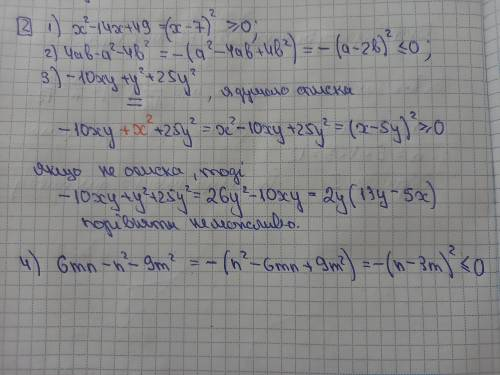 2 1) x² - 14x + 49 = (x-7)² ≥ 0;
2) 4ab - a² - 4b² = -(a² - 4ab + 4b²) = -(a-2b)² ≤ 0;
3) -10xy + y² + 25y² , я думаю описка
-10xy + x² + 25y² = x² - 10xy + 25y² = (x-5y)² ≥ 0
якщо не описка, тоді
-10xy + y² + 25y² = 26y² - 10xy = 2y(13y - 5x)
порівняти неможливо.
4) 6mn - n² - 9m² = -(n² - 6mn + 9m²) = -(n-3m)² ≤ 0